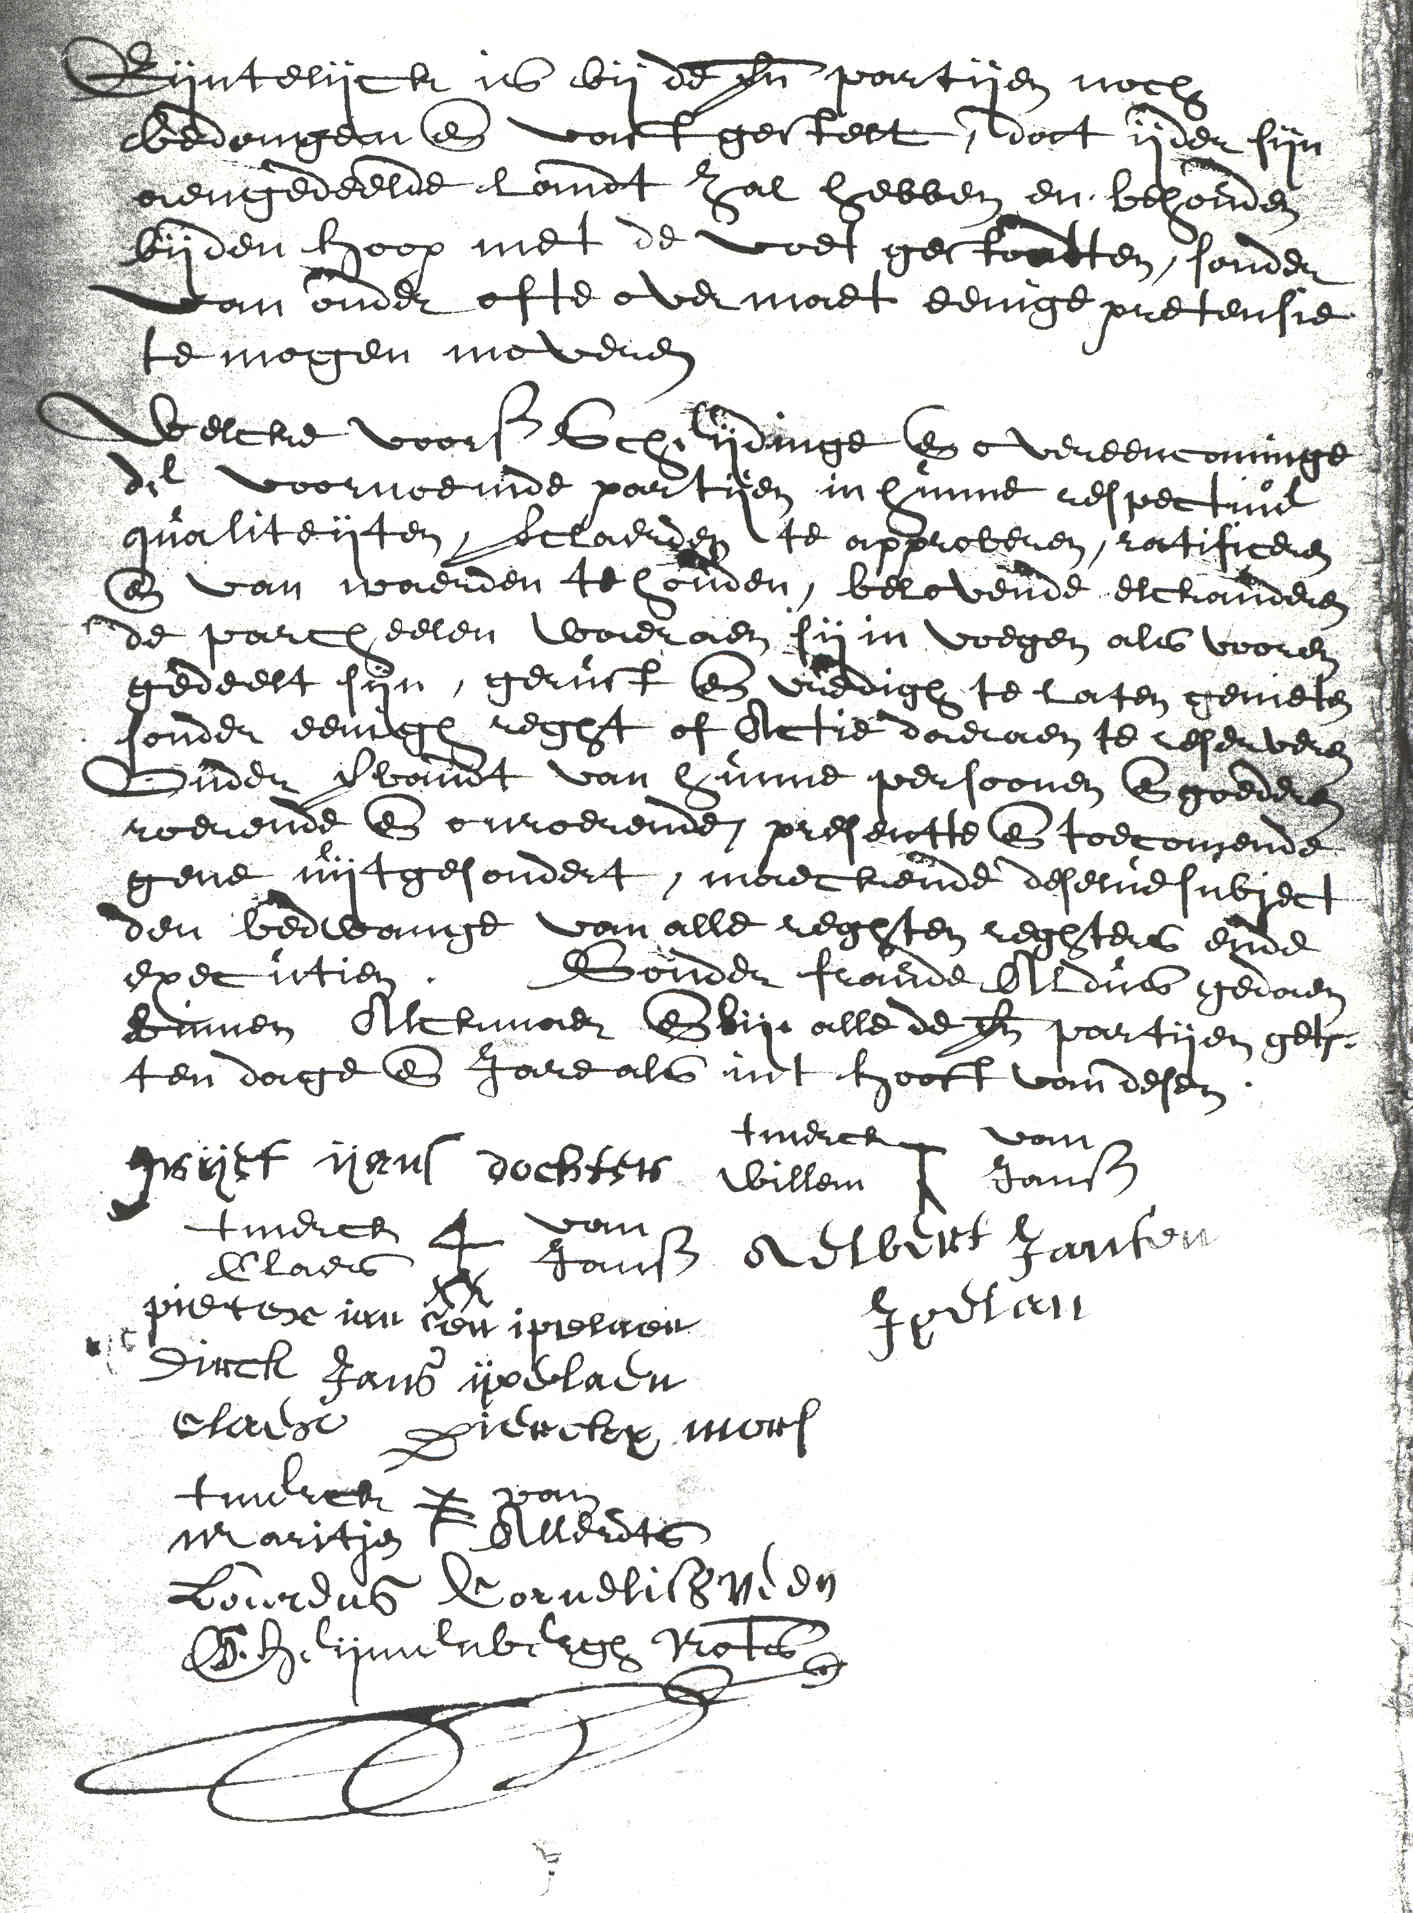 Eijntelijck is bij de sn partijen noch
bedongen en vast gestelt, dat ijder sijn
aengedeelde landt zal hebben en behouden
bijden hoop met de voet gestooten, sonder
van onder ofte overmaet eenige pretensie
te mogen moveren
Welcke voors Scheijdinge en overeencominge
de voornoemde partijen in hunne respective
qualiteijten, verclaerden te approberen, ratificeren
en van waerden te houden, belovende elckanderen
de parcheelen waeraen sij in voegen als vooren
gedeelt sijn, gerust en vredigh te laten genieten
sonder eenigh reght of Actie daeraen te reserveren
Onder verbandt van hunne persoonen en goederen
roerende en onroerende, presentte en toecomende
gene uijtgesondert, maeckende deselve subject
den bedwange van alle reghten reghters ende
executien. Sonder fraude Aldus gedaen
binnen Alckmaer en bij alle de sn partijen get.
ten dage en Jare als int hooft van desen.
ijans dochters
tmerck van
Willem Jans
tmerck van
Claes Jans
Aelbert Jansen
Jpelan
pieter ian sen ipelaen
Dirck Jans ijpelaen
Claes Dierckx mors
tmerck van
Maritjen Allerts
Cornelis
Not